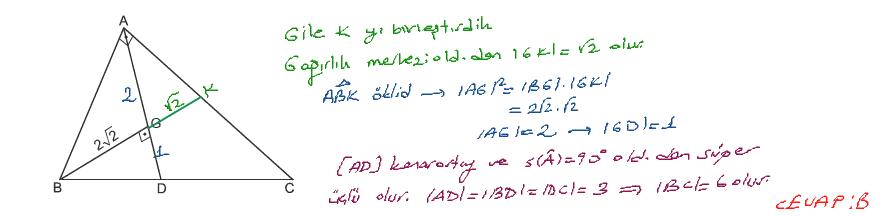 A
G ile K yı birleştirdik
G ağırlık merkezi old.dan |GK| = √2 olur.
K
2
√2
ABK öklid → |AG|² = |BG|.|GK|
= 2√2.√2
2√2
G
1
|AG| = 2 → |GD| = 1
[AD] kenarortay ve s(Â) = 90° old.dan süper
üçlü olur. |AD| = |BD| = |DC| = 3 ⇒ |BC| = 6 olur.
B
D
C
CEVAP: B